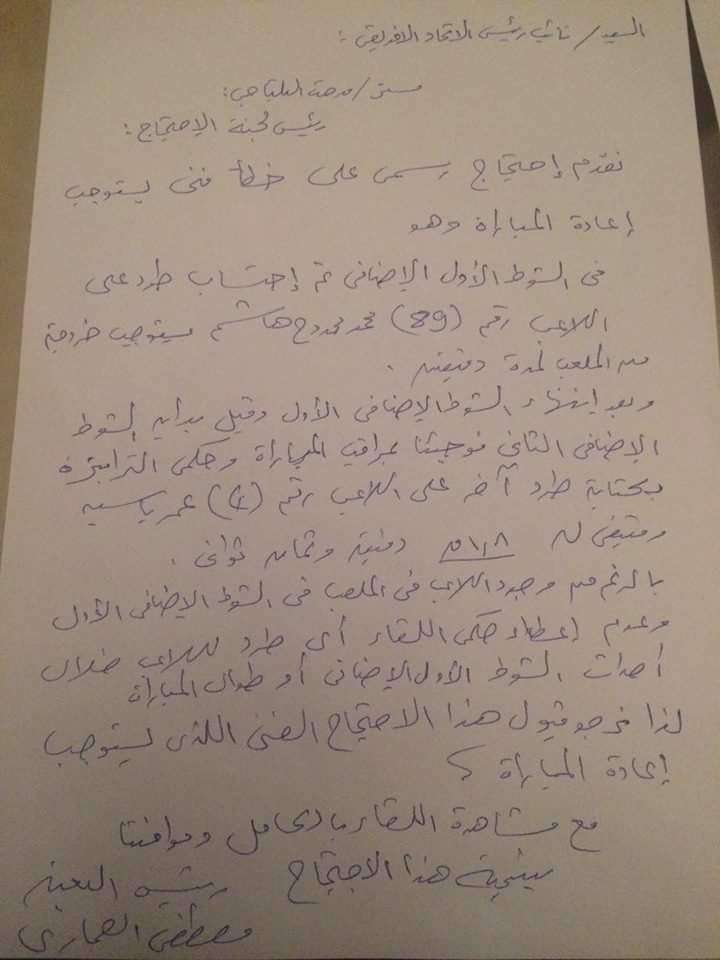 السيد / نائب رئيس الاتحاد الافريقى :
مستر / مدحت البلتاجى :
رئيس لجنة الإحتجاج :
نقدم إحتجاج رسمى على خطأ فنى يستوجب
إعادة المباراة وهو
فى الشوط الأول الإضافى تم إحتساب طرد على
اللاعب رقم (89) محمد ممدوح هاشم يستوجب خروجه
من الملعب لمدة دقيقتين .
وبعد إنتهاء الشوط الإضافى الأول وقبل بداية الشوط
الإضافى الثانى فوجئنا بمراقب المباراة وحكمى الترابيزة
بكتابة طرد آخر على اللاعب رقم عمر ياسين
ومتبقى له ١٫٨ دقيقة وثمان ثوانى .
بالرغم من وجود اللاعب فى الملعب فى الشوط الإضافى الأول
وعدم إعطاء حكمى اللقاء أى طرد لللاعب خلال
أحداث الشوط الأول الإضافى أو طوال المباراة
لذا نرجو قبول هذا الاحتجاج الفنى اللذى يستوجب
إعادة المباراة
مع مشاهدة اللقاء بالكامل وموافتنا
بنتيجة هذا الاحتجاج رئيس البعثة
مصطفى العمارى